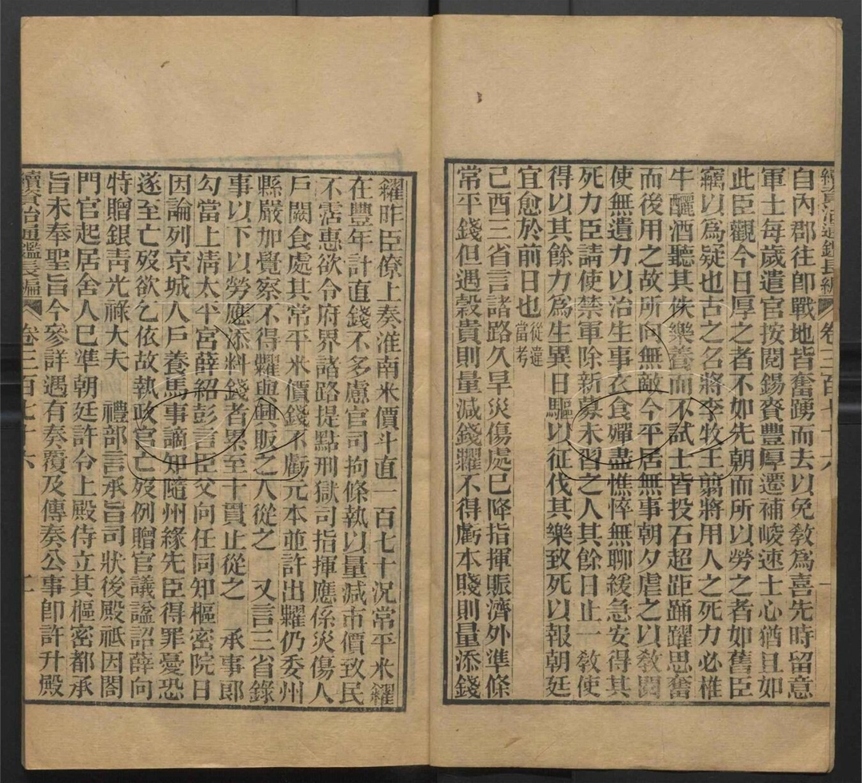 續資治通鑑長編 卷三百七十六
自內郡往卽戰地皆奮踴而去以免敎爲喜先時留意
軍士每歲遣官按閱錫賚豐厚遷補峻速士心猶且如
此臣觀今日厚之者不如先朝而所以勞之者如舊臣
竊以爲疑也古之名將李牧王翦將用人之死力必椎
牛釃酒聽其佚樂養而不試士皆投石超距踊躍思奮
而後用之故所向無敵今平居無事朝夕虐之以敎閱
使無遺力以治生事衣食殫盡憔悴無聊緩急安得其
死力臣請使禁軍除新募未習之人其餘日止一敎使
得以其餘力爲生異日驅以征伐其樂致死以報朝廷
宜愈於前日也從違當考
己酉三省言諸路久旱災傷處已降指揮賑濟外準條
常平錢但遇穀貴則量減錢糶不得虧本賤則量添錢
糴昨臣僚上奏淮南米價斗直一百七十況常平米糴
在豐年計直錢不多慮官司拘條執以量減市價致民
不霑惠欲令府界諸路提點刑獄司指揮應係災傷人
戶闕食處其常平米價錢不虧元本並許出糶仍委州
縣嚴加覺察不得糶與興販之人從之 又言三省錄
事以下以勞應添料錢者累至十貫止從之 承事郞
勾當上淸太平宮薛紹彭言臣父向任同知樞密院日
因論列京城人戶養馬事謫知隨州緣先臣得罪憂恐
遂至亡歿欲乞依故執政官亡歿例贈官議諡詔薛向
特贈銀靑光祿大夫 禮部言承旨司狀後殿祗因閤
門官起居舍人已準朝廷許令上殿侍立其樞密都承
旨未奉聖旨今參詳遇有奏覆及傳奏公事卽許升殿
續資治通鑑長編 卷三百七十六